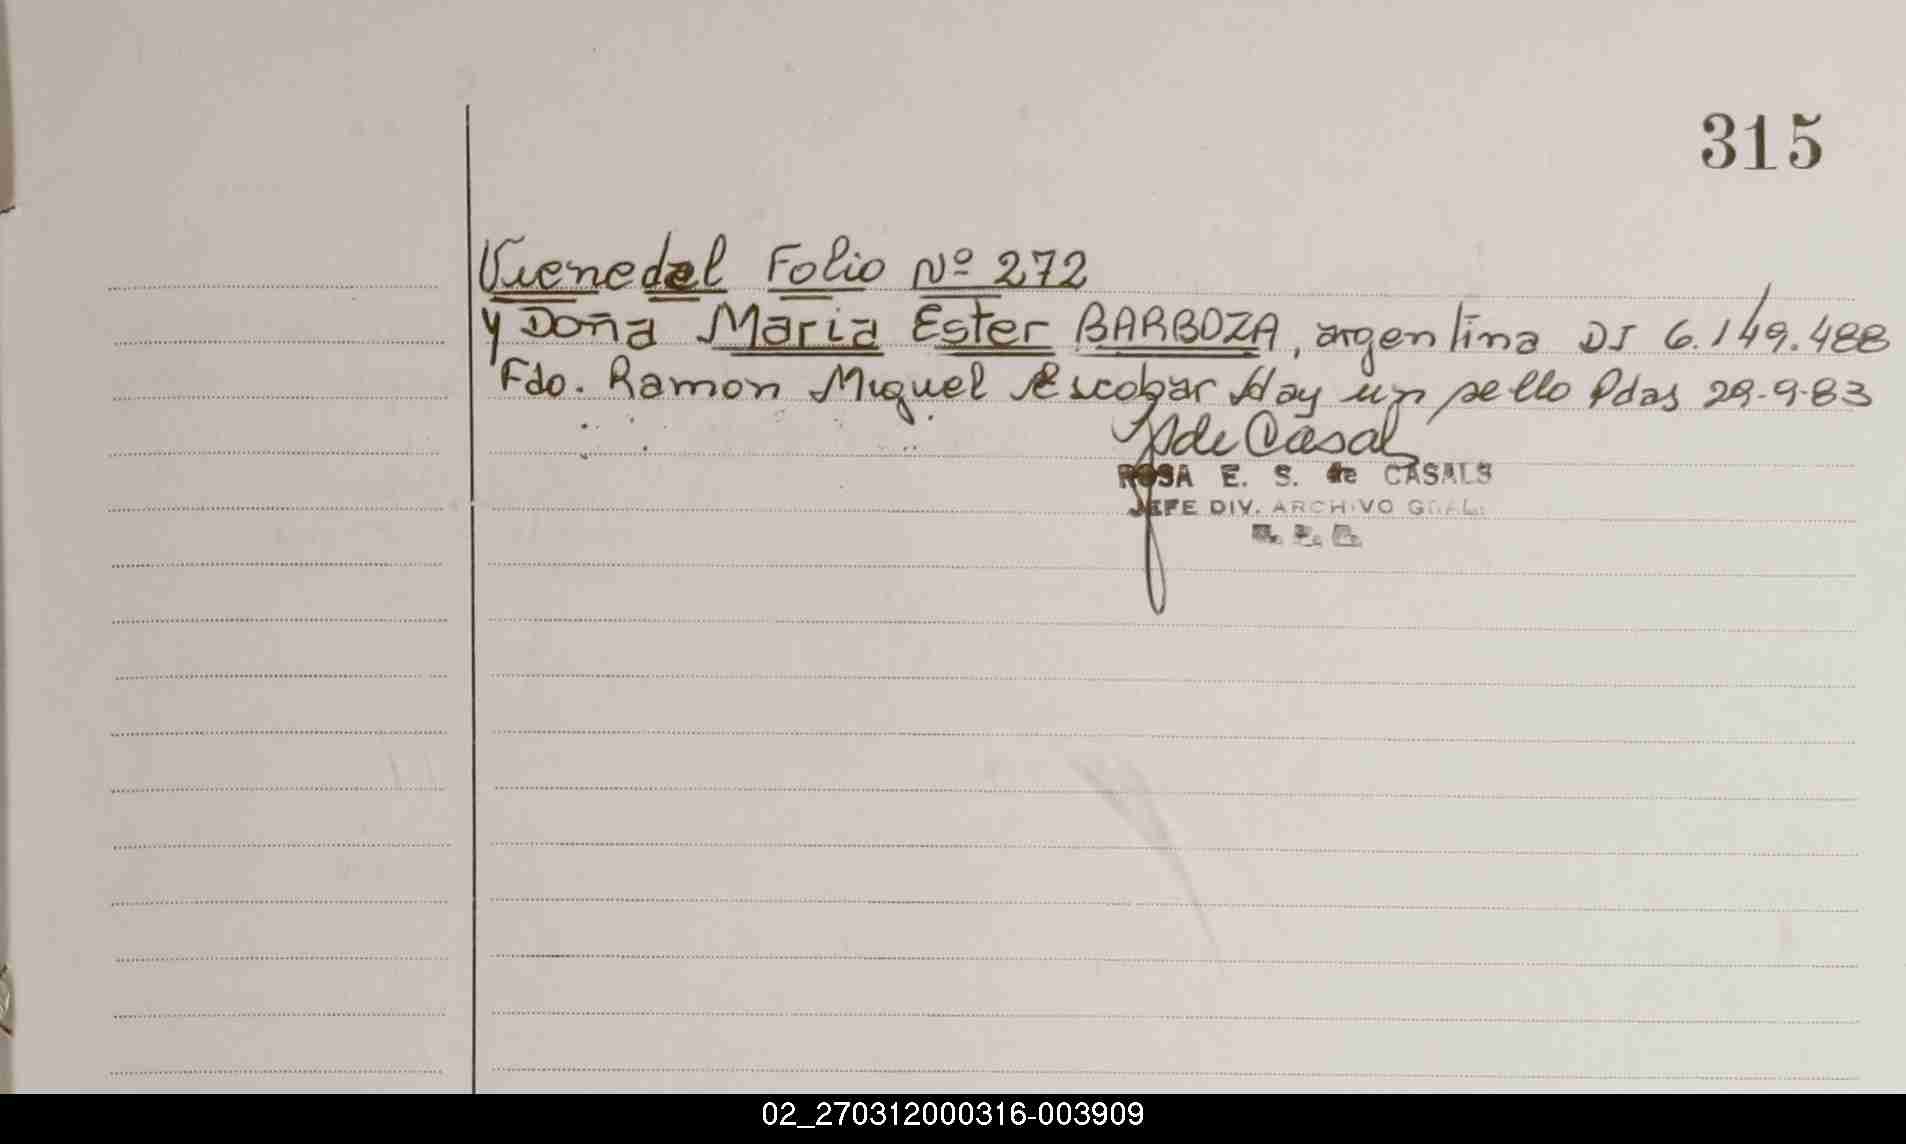 315
Vienedel Folio Nº 272
y Doña Maria Ester BARBOZA, argentina DI 6.149.488
Fdo. Ramon Miguel Escobar Hay un sello Pdas 29-9-83
de Casal
ROSA E. S. de CASALS
JEFE DIV. ARCHIVO GRAL.
02_270312000316-003909